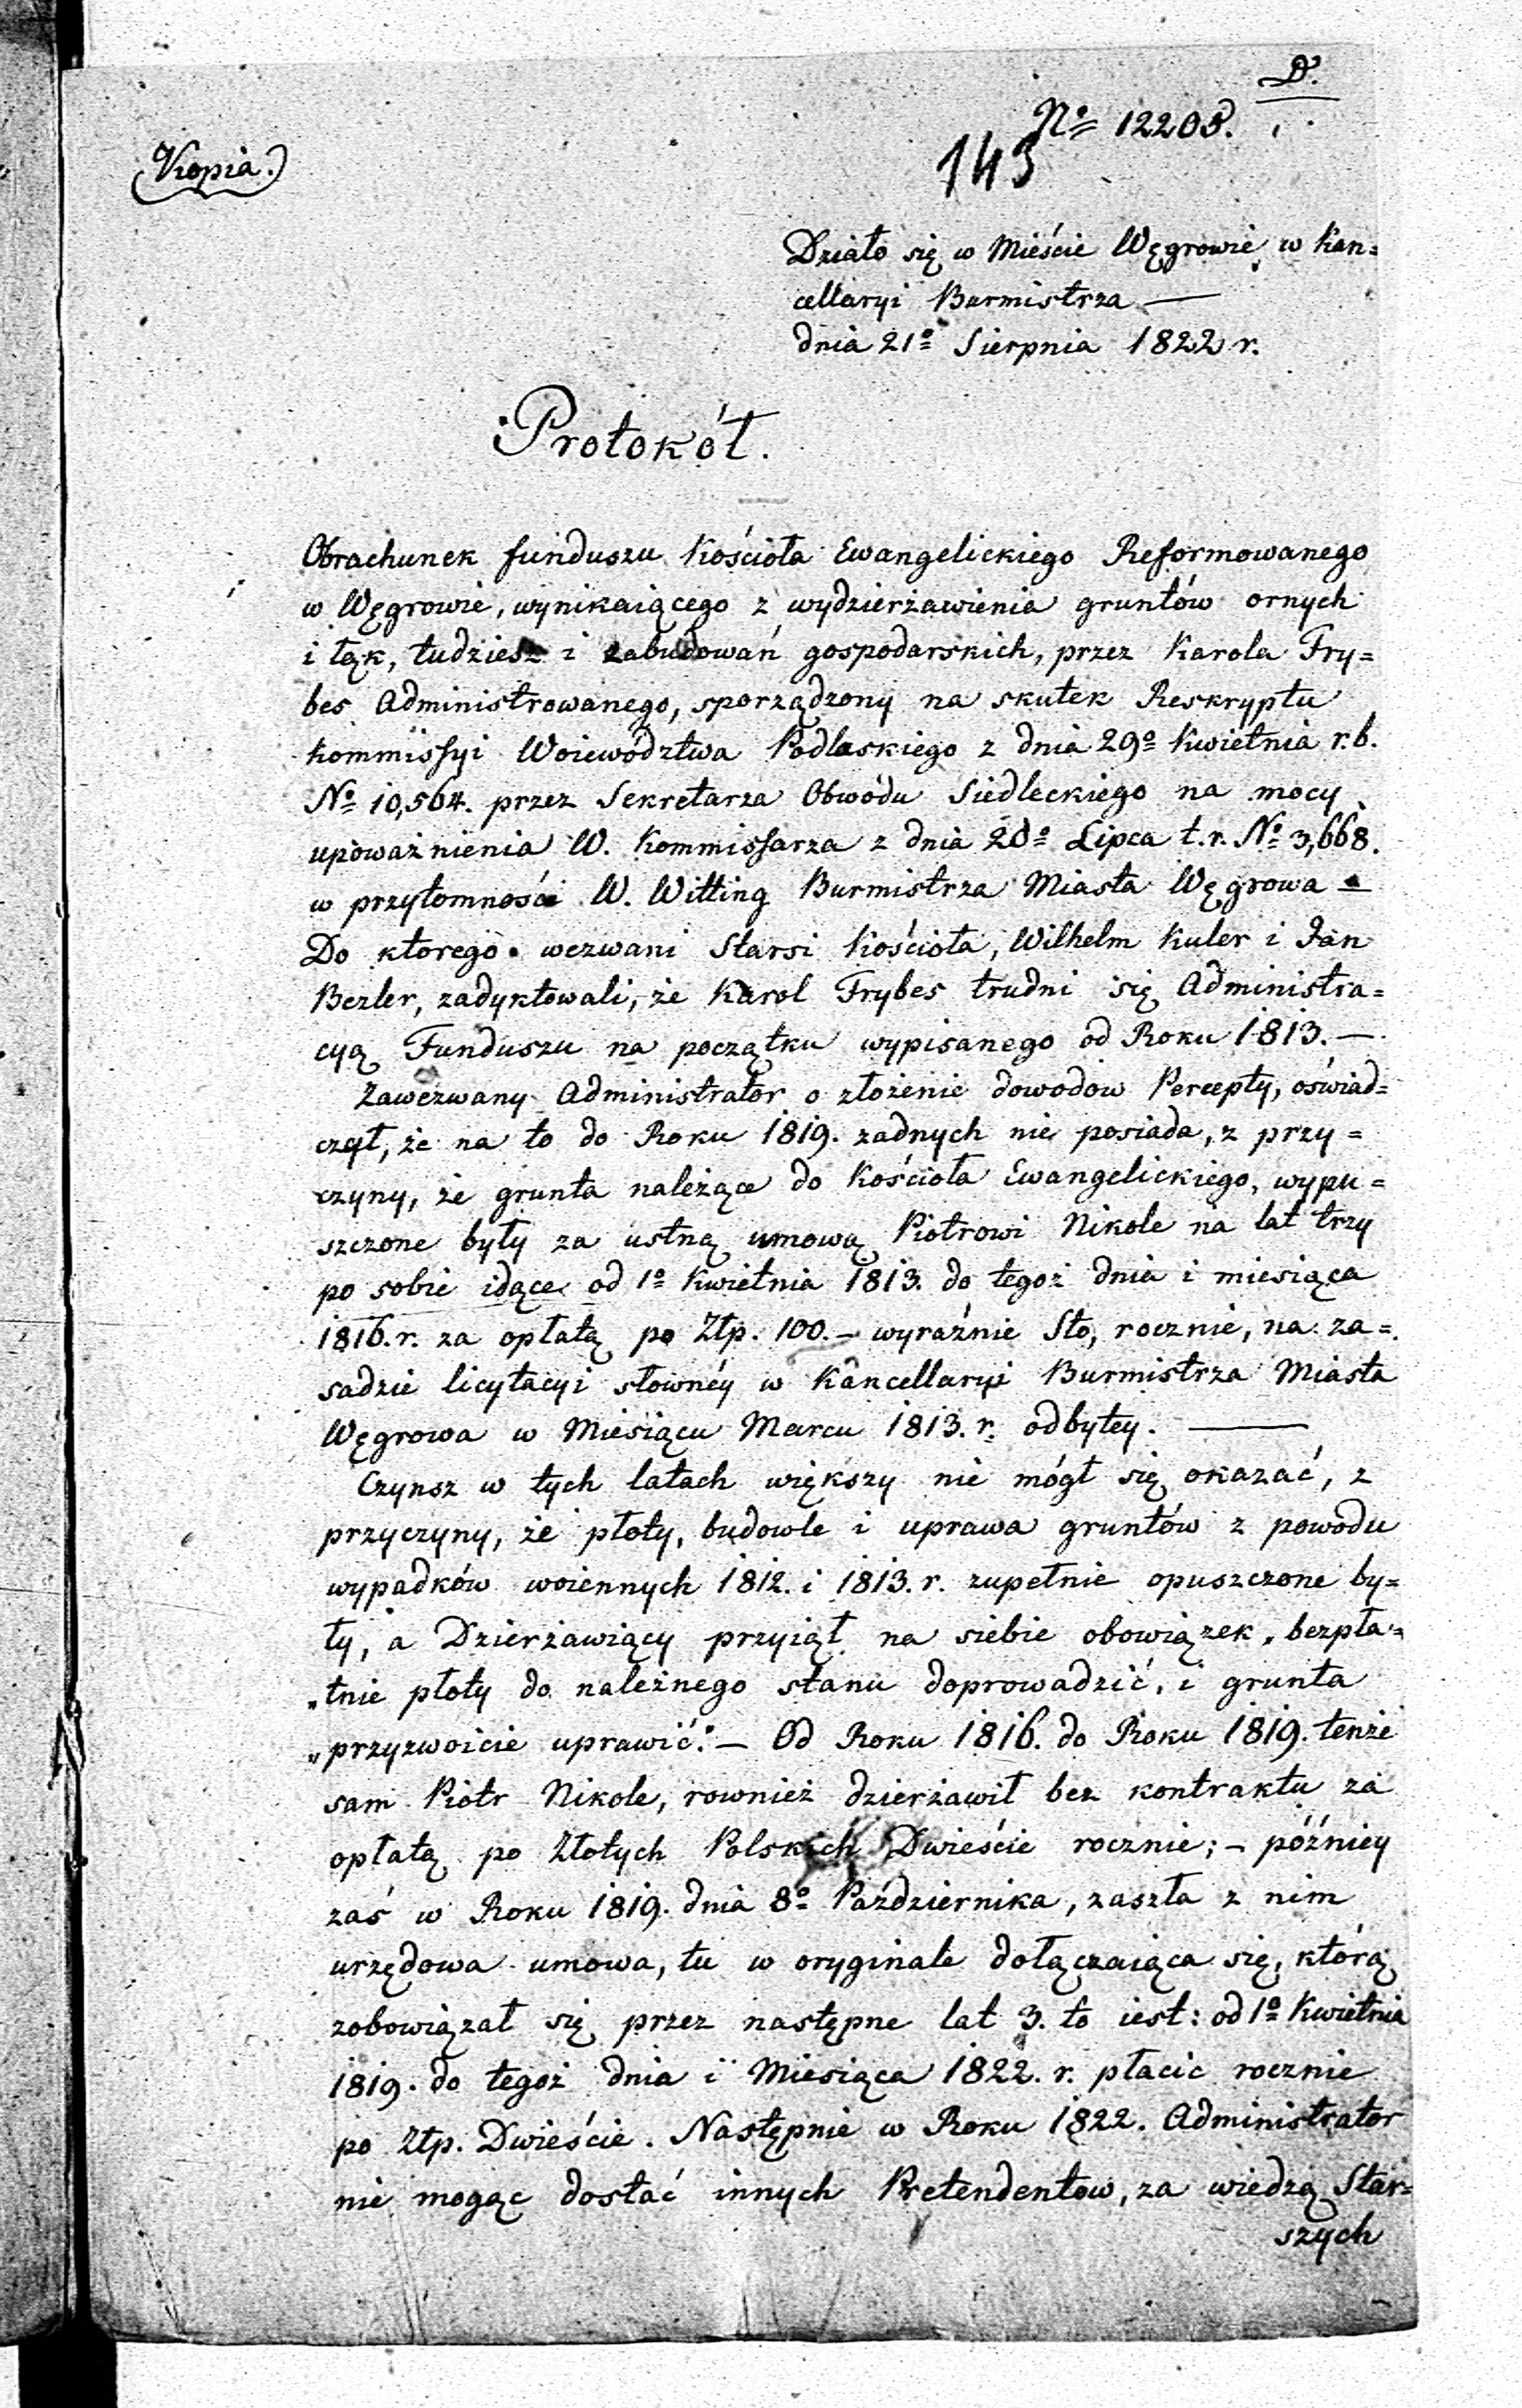 D.
No 12203.
143
(Kopia.)
Działo się w Mieście Węgrowie w Kan=
cellaryi Burmistrza —
dnia 21o Sierpnia 1822 r.
Protokół.
Obrachunek funduszu Kościoła Ewangelickiego Reformowanego
w Węgrowie, wynikaiącego z wydzierżawienia gruntów ornych
i łąk, tudziesz i zabudowań gospodarskich, przez Karola Fry=
bes Administrowanego, sporządzony na skutek Reskryptu
Kommissyi Woiewództwa Podlaskiego z dnia 29o Kwietnia r.b.
No 10,564. przez Sekretarza Obwodu Siedleckiego na mocy
upoważnienia W. Kommissarza z dnia 20o Lipca t.r. No 3,668.
w przytomności W. Witting Burmistrza Miasta Węgrowa —
Do ktorego wezwani Starsi Kościoła, Wilhelm Kuler i Jan
Bezler, zadyktowali, że Karol Frybes trudni się Administra=
cyą Funduszu na początku wypisanego od Roku 1813. —
Zawezwany Administrator o złożenie dowodow Percepty, oświad=
czył, że na to do Roku 1819. zadnych nie posiada, z przy=
czyny, że grunta należące do Kościoła Ewangelickiego, wypu=
szczone były za ustną umową Piotrowi Nikole na lat trzy
po sobie idące od 1o Kwietnia 1813. do tegoż dnia i miesiąca
1816. r. za opłatą po Złp. 100. — wyraźnie Sto, rocznie, na za=
sadzie licytacyi słownéy w Kancellaryi Burmistrza Miasta
Węgrowa w Miesiącu Marcu 1813. r. odbytey. —
Czynsz w tych latach większy nie mógł się okazać, z
przyczyny, że płoty, budowle i uprawa gruntów z powodu
wypadków woiennych 1812. i 1813. r. zupełnie opuszczone by=
ły, a Dzierżawiący przyiął na siebie obowiązek „bezpła=
„tnie płoty do należnego stanu doprowadzić, i grunta
„przyzwoicie uprawić." — Od Roku 1816. do Roku 1819. tenże
sam Piotr Nikole, rownież dzierżawił bez kontraktu za
opłatą po Złotych Polskich Dwieście rocznie; — późniey
zaś w Roku 1819. dnia 8o Października, zaszła z nim
urzędowa umowa, tu w oryginale dołączaiąca się, którą
zobowiązał się przez następne lat 3. to iest: od 1o Kwietnia
1819. do tegoż dnia i Miesiąca 1822. r. płacic rocznie
po Złp. Dwieście. Następnie w Roku 1822. Administrator
nie mogąc dostać innych Pretendentow, za wiedzą Star=
szych